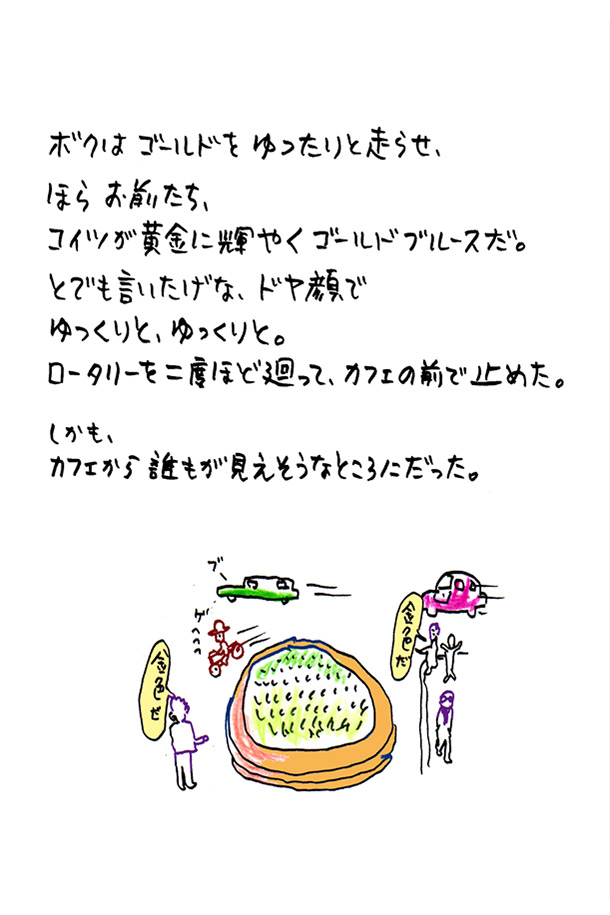 ボクは ゴールドを ゆったりと走らせ、
ほら お前たち、
コイツが黄金に輝やくゴールドブルースだ。
とでも言いたげな、ドヤ顔で
ゆっくりと、ゆっくりと。
ロータリーを二度ほど廻って、カフェの前で止めた。
しかも、
カフェから誰もが見えそうなところにだった。
ブ
ゲ
へへへ
金色だ
金色ぜ